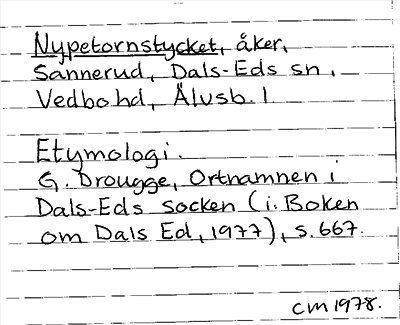 Nypetornstycket, åker,
Sannerud, Dals-Eds sn,
Vedbo hd, Älvsb. l
Etymologi.
G. Drougge, Ortnamnen i
Dals-Eds socken (i: Boken
om Dals Ed, 1977), s. 667.
CM 1978.